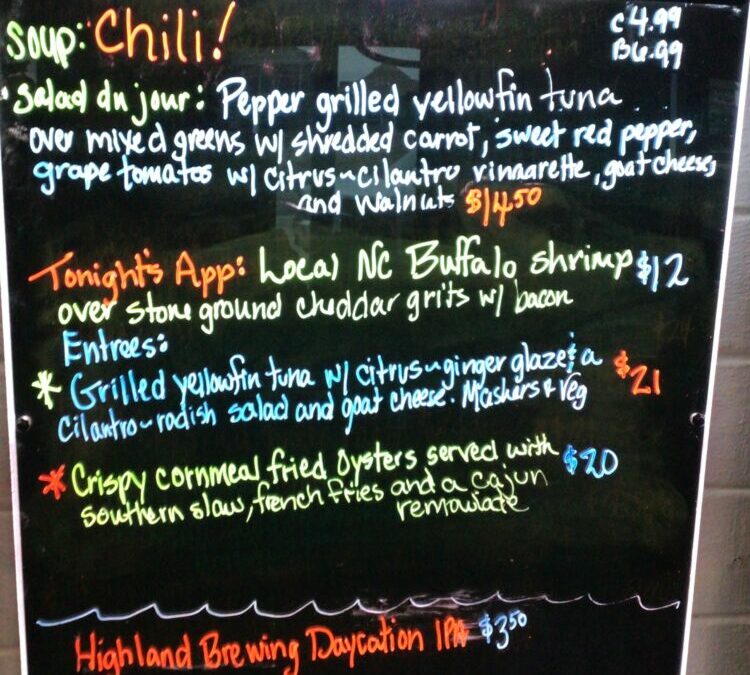 Soup: Chili! C 4.99
B 6.99
Salad du jour: Pepper grilled yellowfin tuna
over mixed greens w/ shredded carrot, sweet red pepper,
grape tomatos w/ citrus~cilantro vinnarette, goat cheese,
and walnuts $14.50
Tonight's App: Local NC Buffalo shrimp $12
over stone ground cheddar grits w/ bacon
Entrees:
* Grilled yellowfin tuna w/ citrus~ginger glaze & a $21
cilantro~radish salad and goat cheese. Mashers & veg
* Crispy cornmeal fried Oysters served with $20
southern slaw, french fries and a cajun
remoulade
Highland Brewing Daycation IPA $3.50